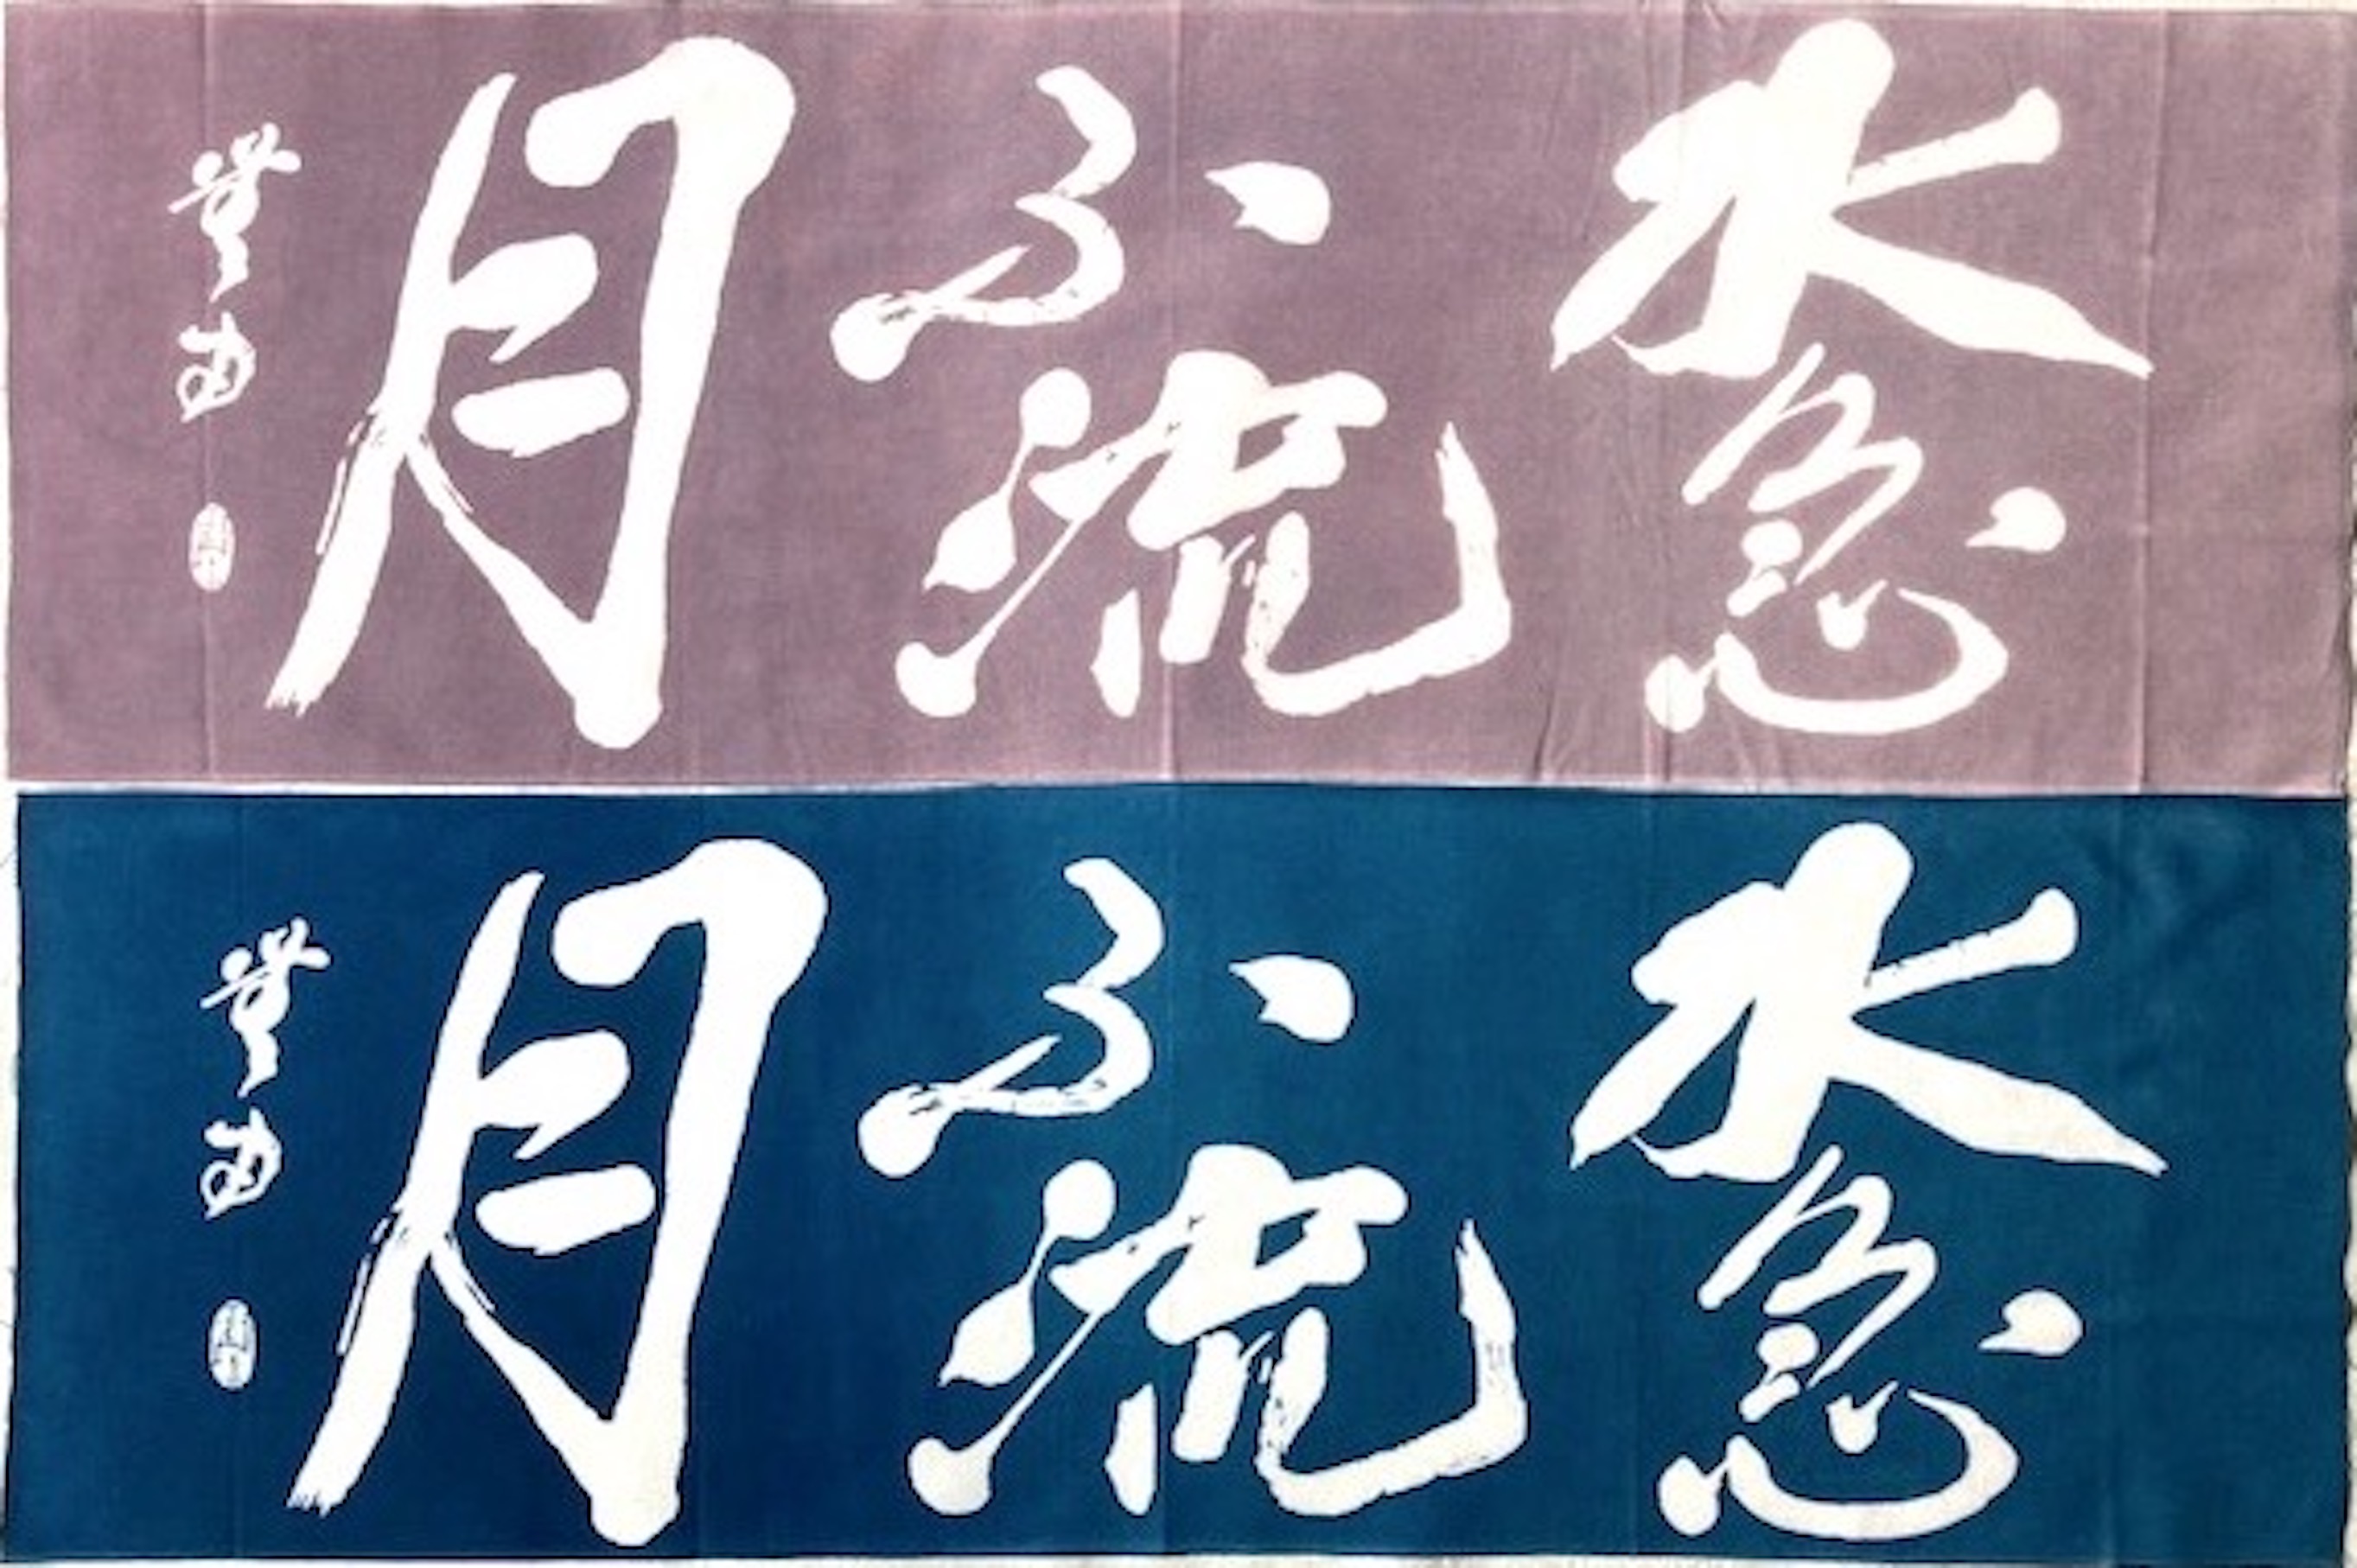 水急
不流
月
水急
不流
月